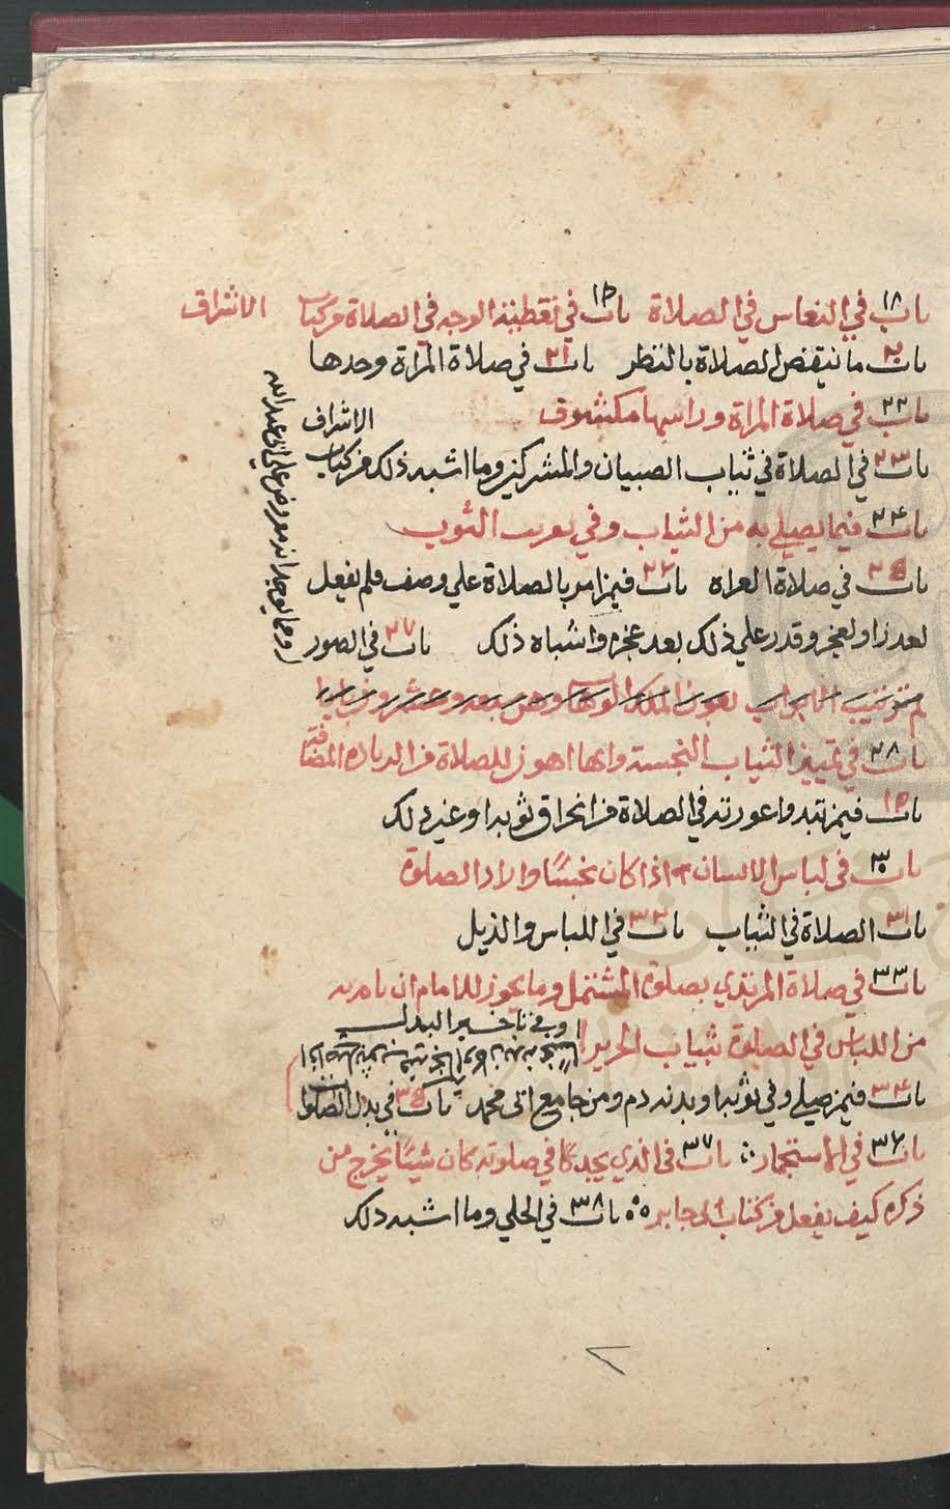 باب ١٨ في النعاس في الصلاة باب ١٩ في تغطية الوجه في الصلاة من كتاب الاشراف
باب ٢٠ ما ينقض الصلاة بالنظر باب ٢١ في صلاة المراة وحدها
باب ٢٢ في صلاة المراة وراسها مكشوف
باب ٢٣ في الصلاة في ثياب الصبيان والمشركين وما اشبه ذلك من كتاب الاشراف
باب ٢٤ فيما يصلي به من الثياب وفي الثوب
باب ٢٥ في صلاة العراه باب ٢٦ فيمن امر بالصلاة علي وصف فلم يفعل
لعذر او لعجز وقدر علي ذلك بعد عجزه واشباه ذلك باب ٢٧ في الصور
ومما يوجد انه معروض علي ابي عبدالله
تم ترتيب الابواب بعون الملك الوهاب وعشرون بابا
باب ٢٨ في تمييز الثياب النجسة وايها اهون للصلاة من الزيادة المضافة
باب ٢٩ فيمن تبدوا عورته في الصلاة من انخراق ثوبه او غير ذلك
باب ٣٠ في لباس الانسان اذا كان نجسًا واراد الصلوة
باب ٣١ الصلاة في الثياب باب ٣٢ في اللباس والذيل
باب ٣٣ في صلاة المرتدي بصلوة المشتمل وما يجوز للامام ان يامر به
من اللباس في الصلوة بثياب الحرير
وفي تاخير البدل
باب ٣٤ فيمن صلي وفي ثوبه او بدنه دم ومن جامع ابي محمد باب ٣٥ في بدل الصلوة
باب ٣٦ في الاستجمار باب ٣٧ في الذي يجد في صلوته كان شيئًا يخرج من
ذكره كيف يفعل من كتاب ابي جابر باب ٣٨ في الحلي وما اشبه ذلك